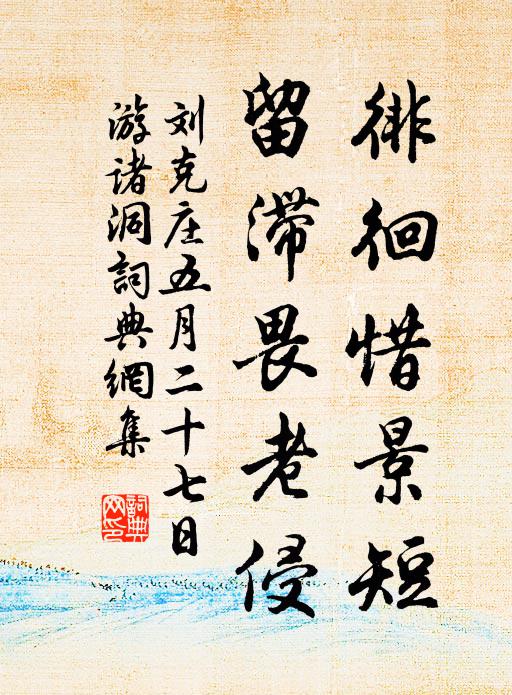 徘徊惜景短
留滞畏老侵
刘克庄五月二十七日
游诸洞詞典網集
詞典
网印